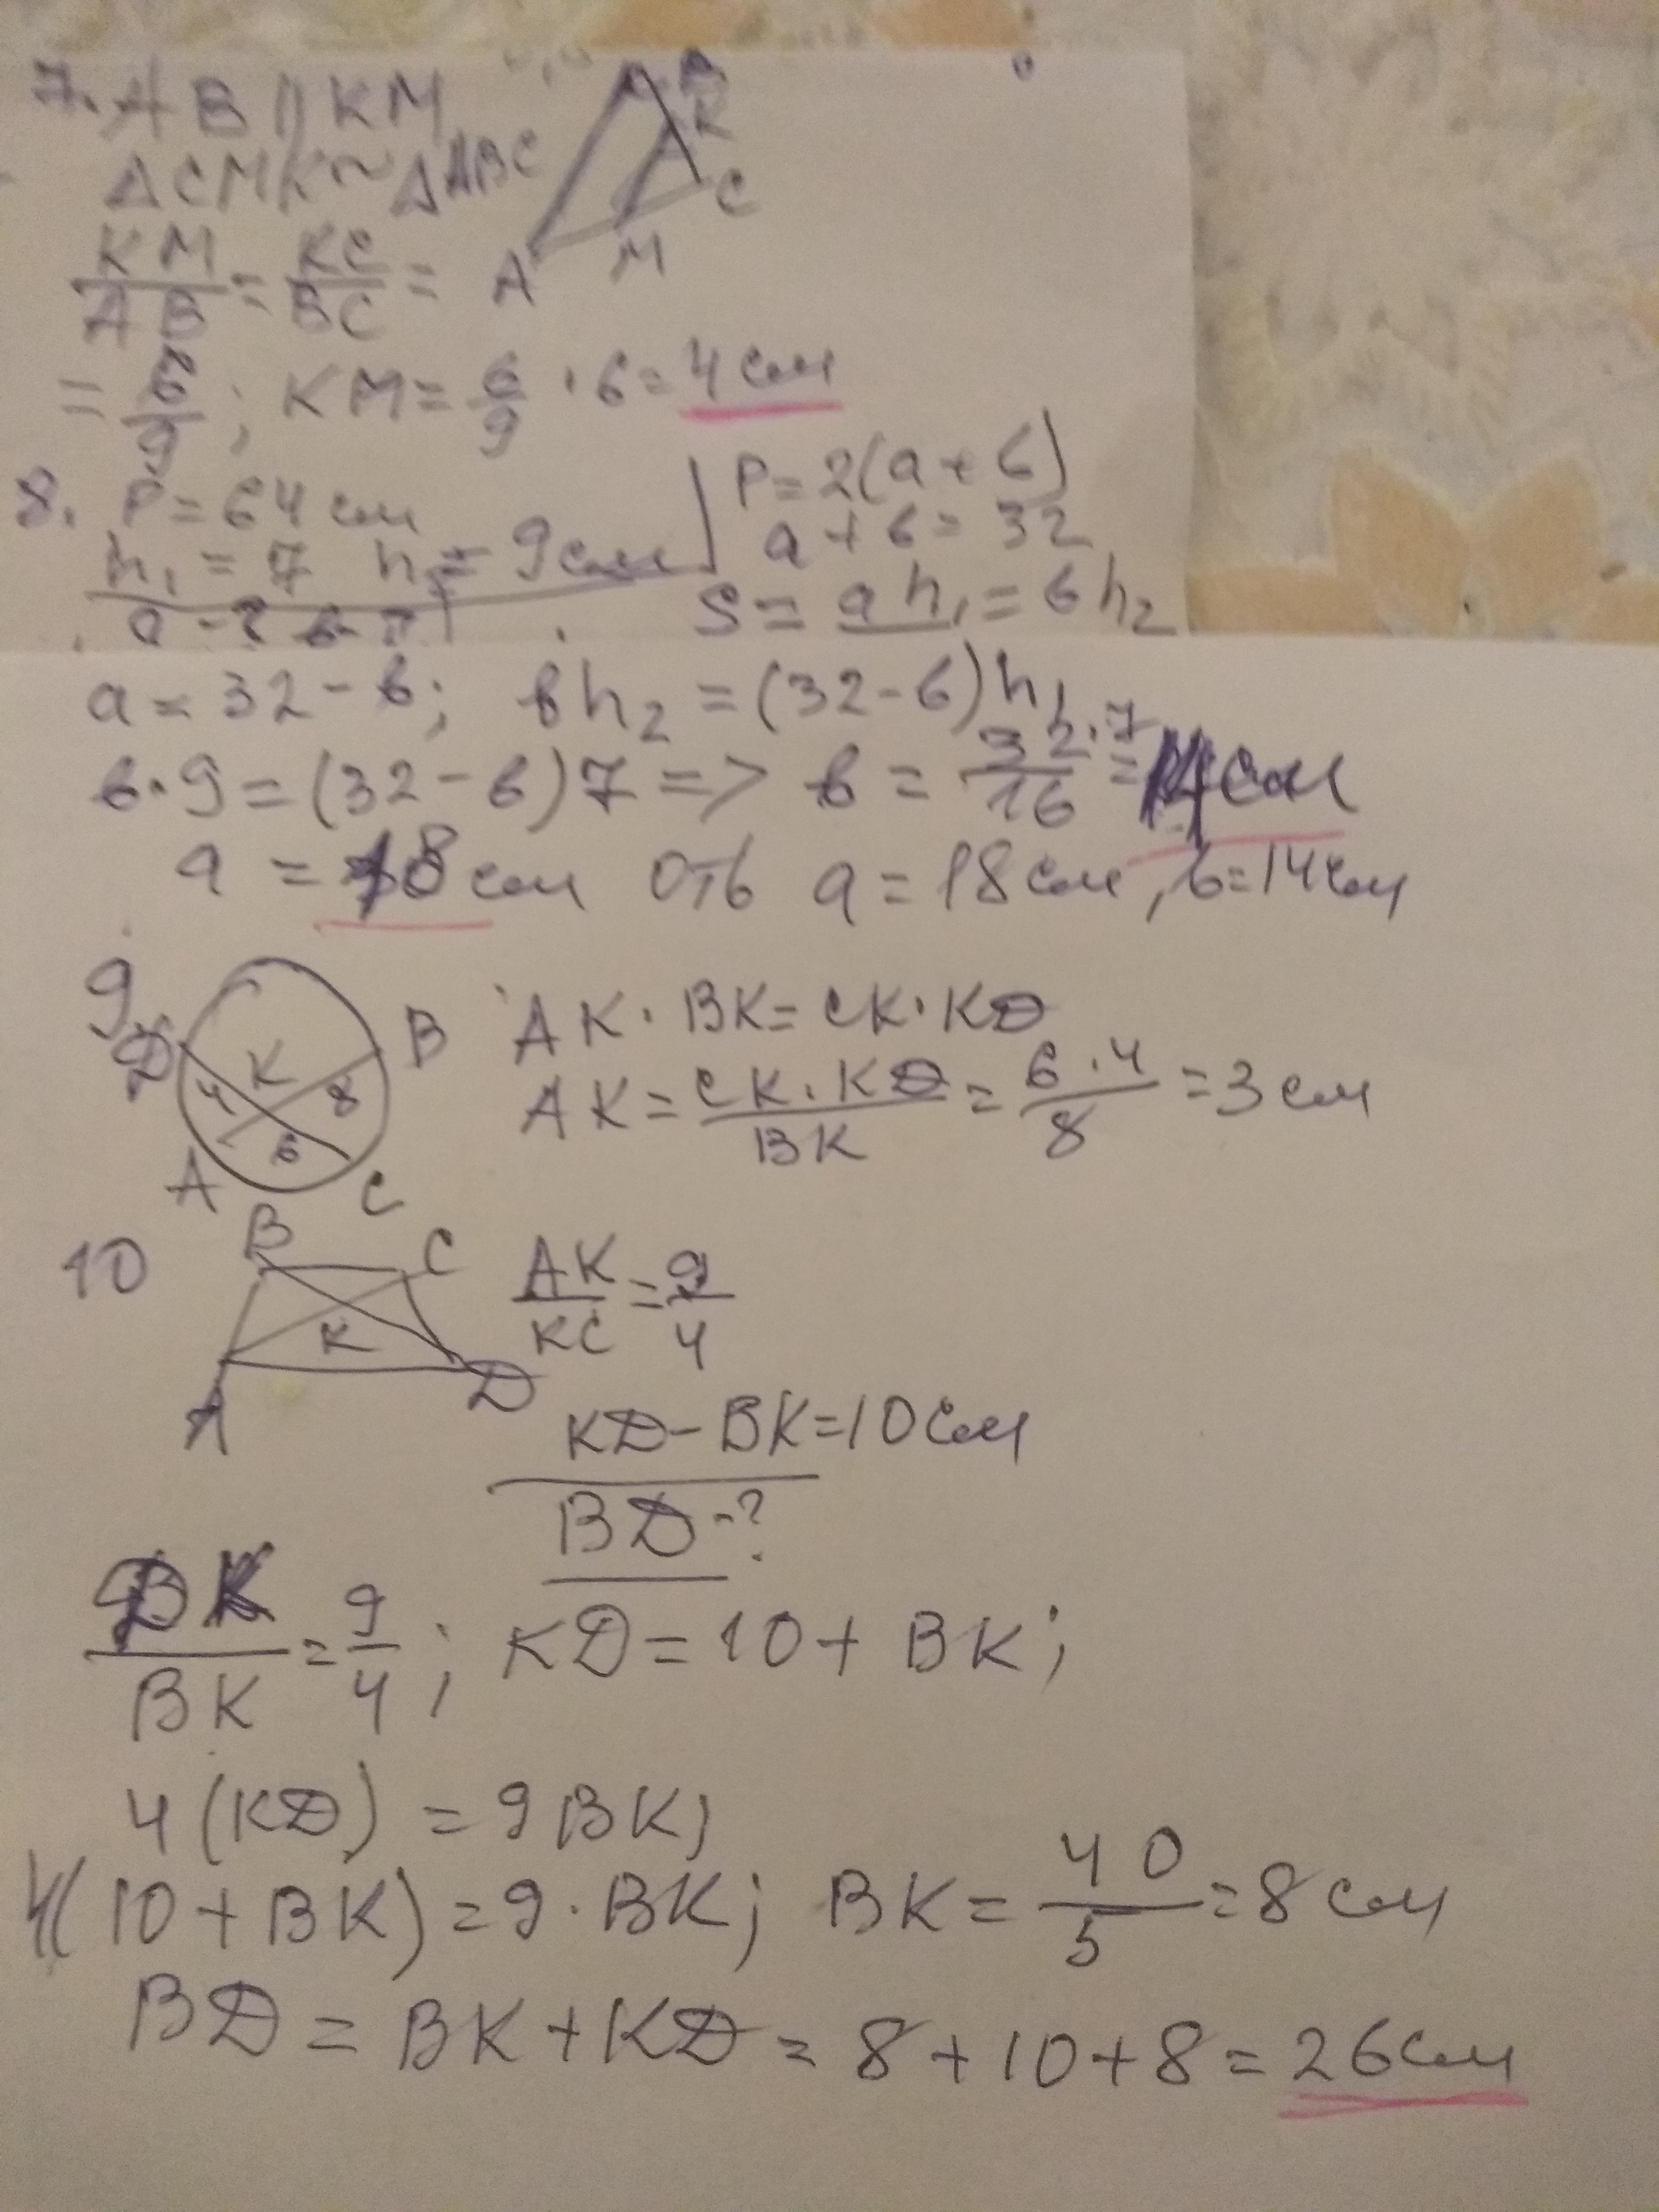 7. AB || KM
B
K
C
A
M
ΔCMK ~ ΔABC
KM/AB = KC/BC =
= 6/9; KM = 6/9 · 6 = 4 см
8. P = 64 см
h₁ = 7 h₂ = 9 см
a - ? в - ?
P = 2(a + в)
a + в = 32
S = ah₁ = вh₂
a = 32 - в; вh₂ = (32 - в)h₁
в · 9 = (32 - в)7 => в = 32·7/16 = 14 см
a = 18 см отв a = 18 см, в = 14 см
9.
D
B
K
4
8
6
A
C
AK · BK = CK · KD
AK = CK · KD/BK = 6 · 4/8 = 3 см
10
B
C
K
A
D
AK/KC = 9/4
KD - BK = 10 см
BD - ?
DK/BK = 9/4; KD = 10 + BK;
4(KD) = 9BK;
4(10 + BK) = 9 · BK; BK = 40/5 = 8 см
BD = BK + KD = 8 + 10 + 8 = 26 см